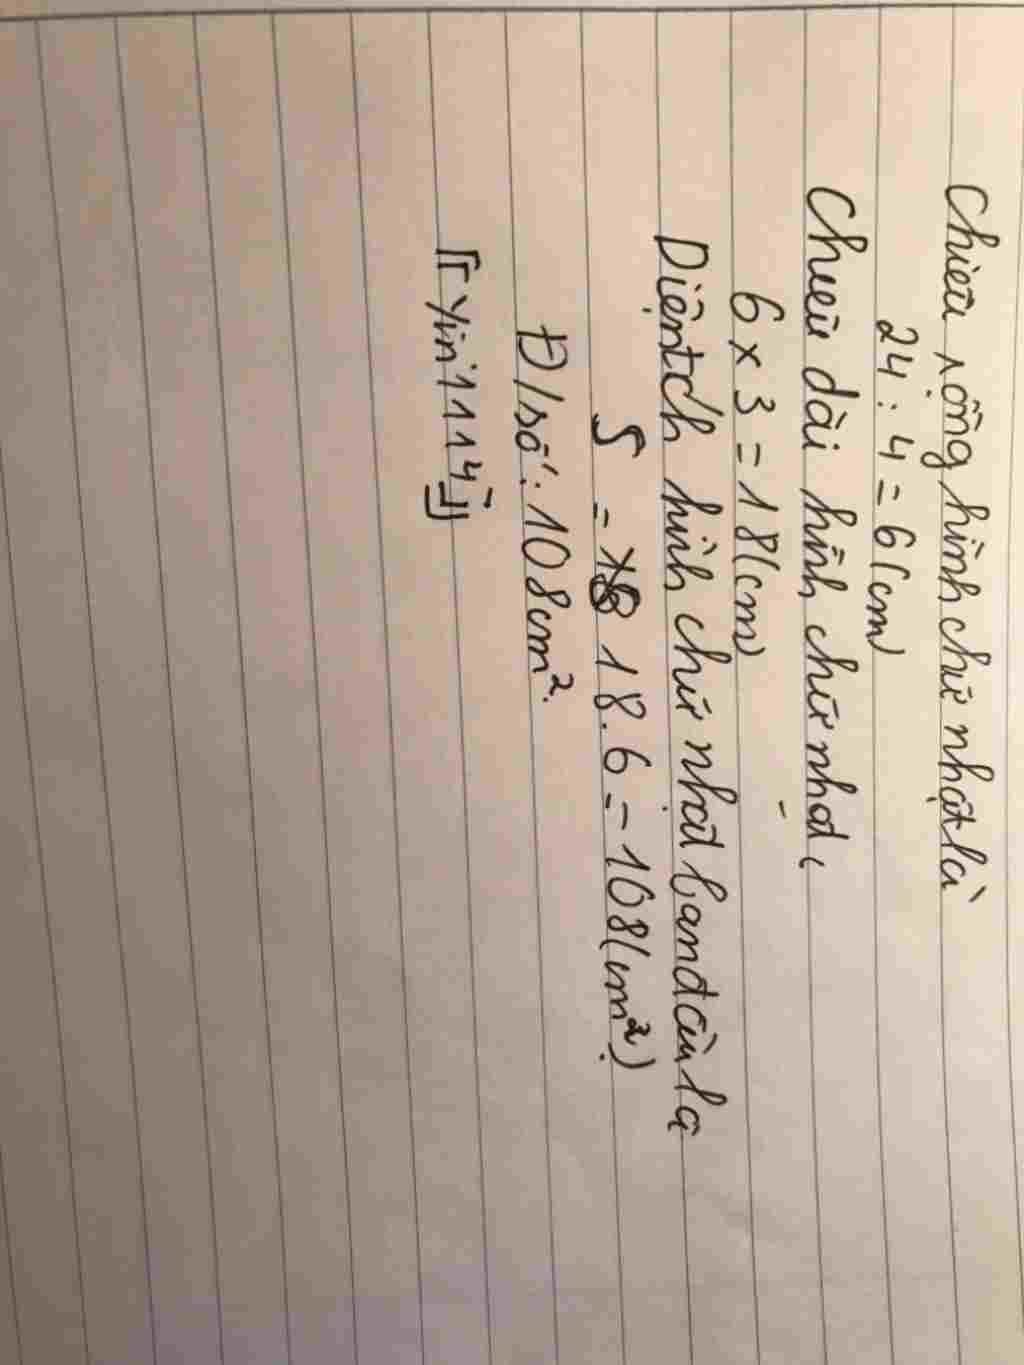 Chiều rộng hình chữ nhật là
24 : 4 = 6 (cm)
Chiều dài hình chữ nhật
6 x 3 = 18 (cm)
Diện tch hình chữ nhật ban đầu là
S = 18 . 6 = 108 (cm²)
Đ/số: 108cm².
『Γyin1114』